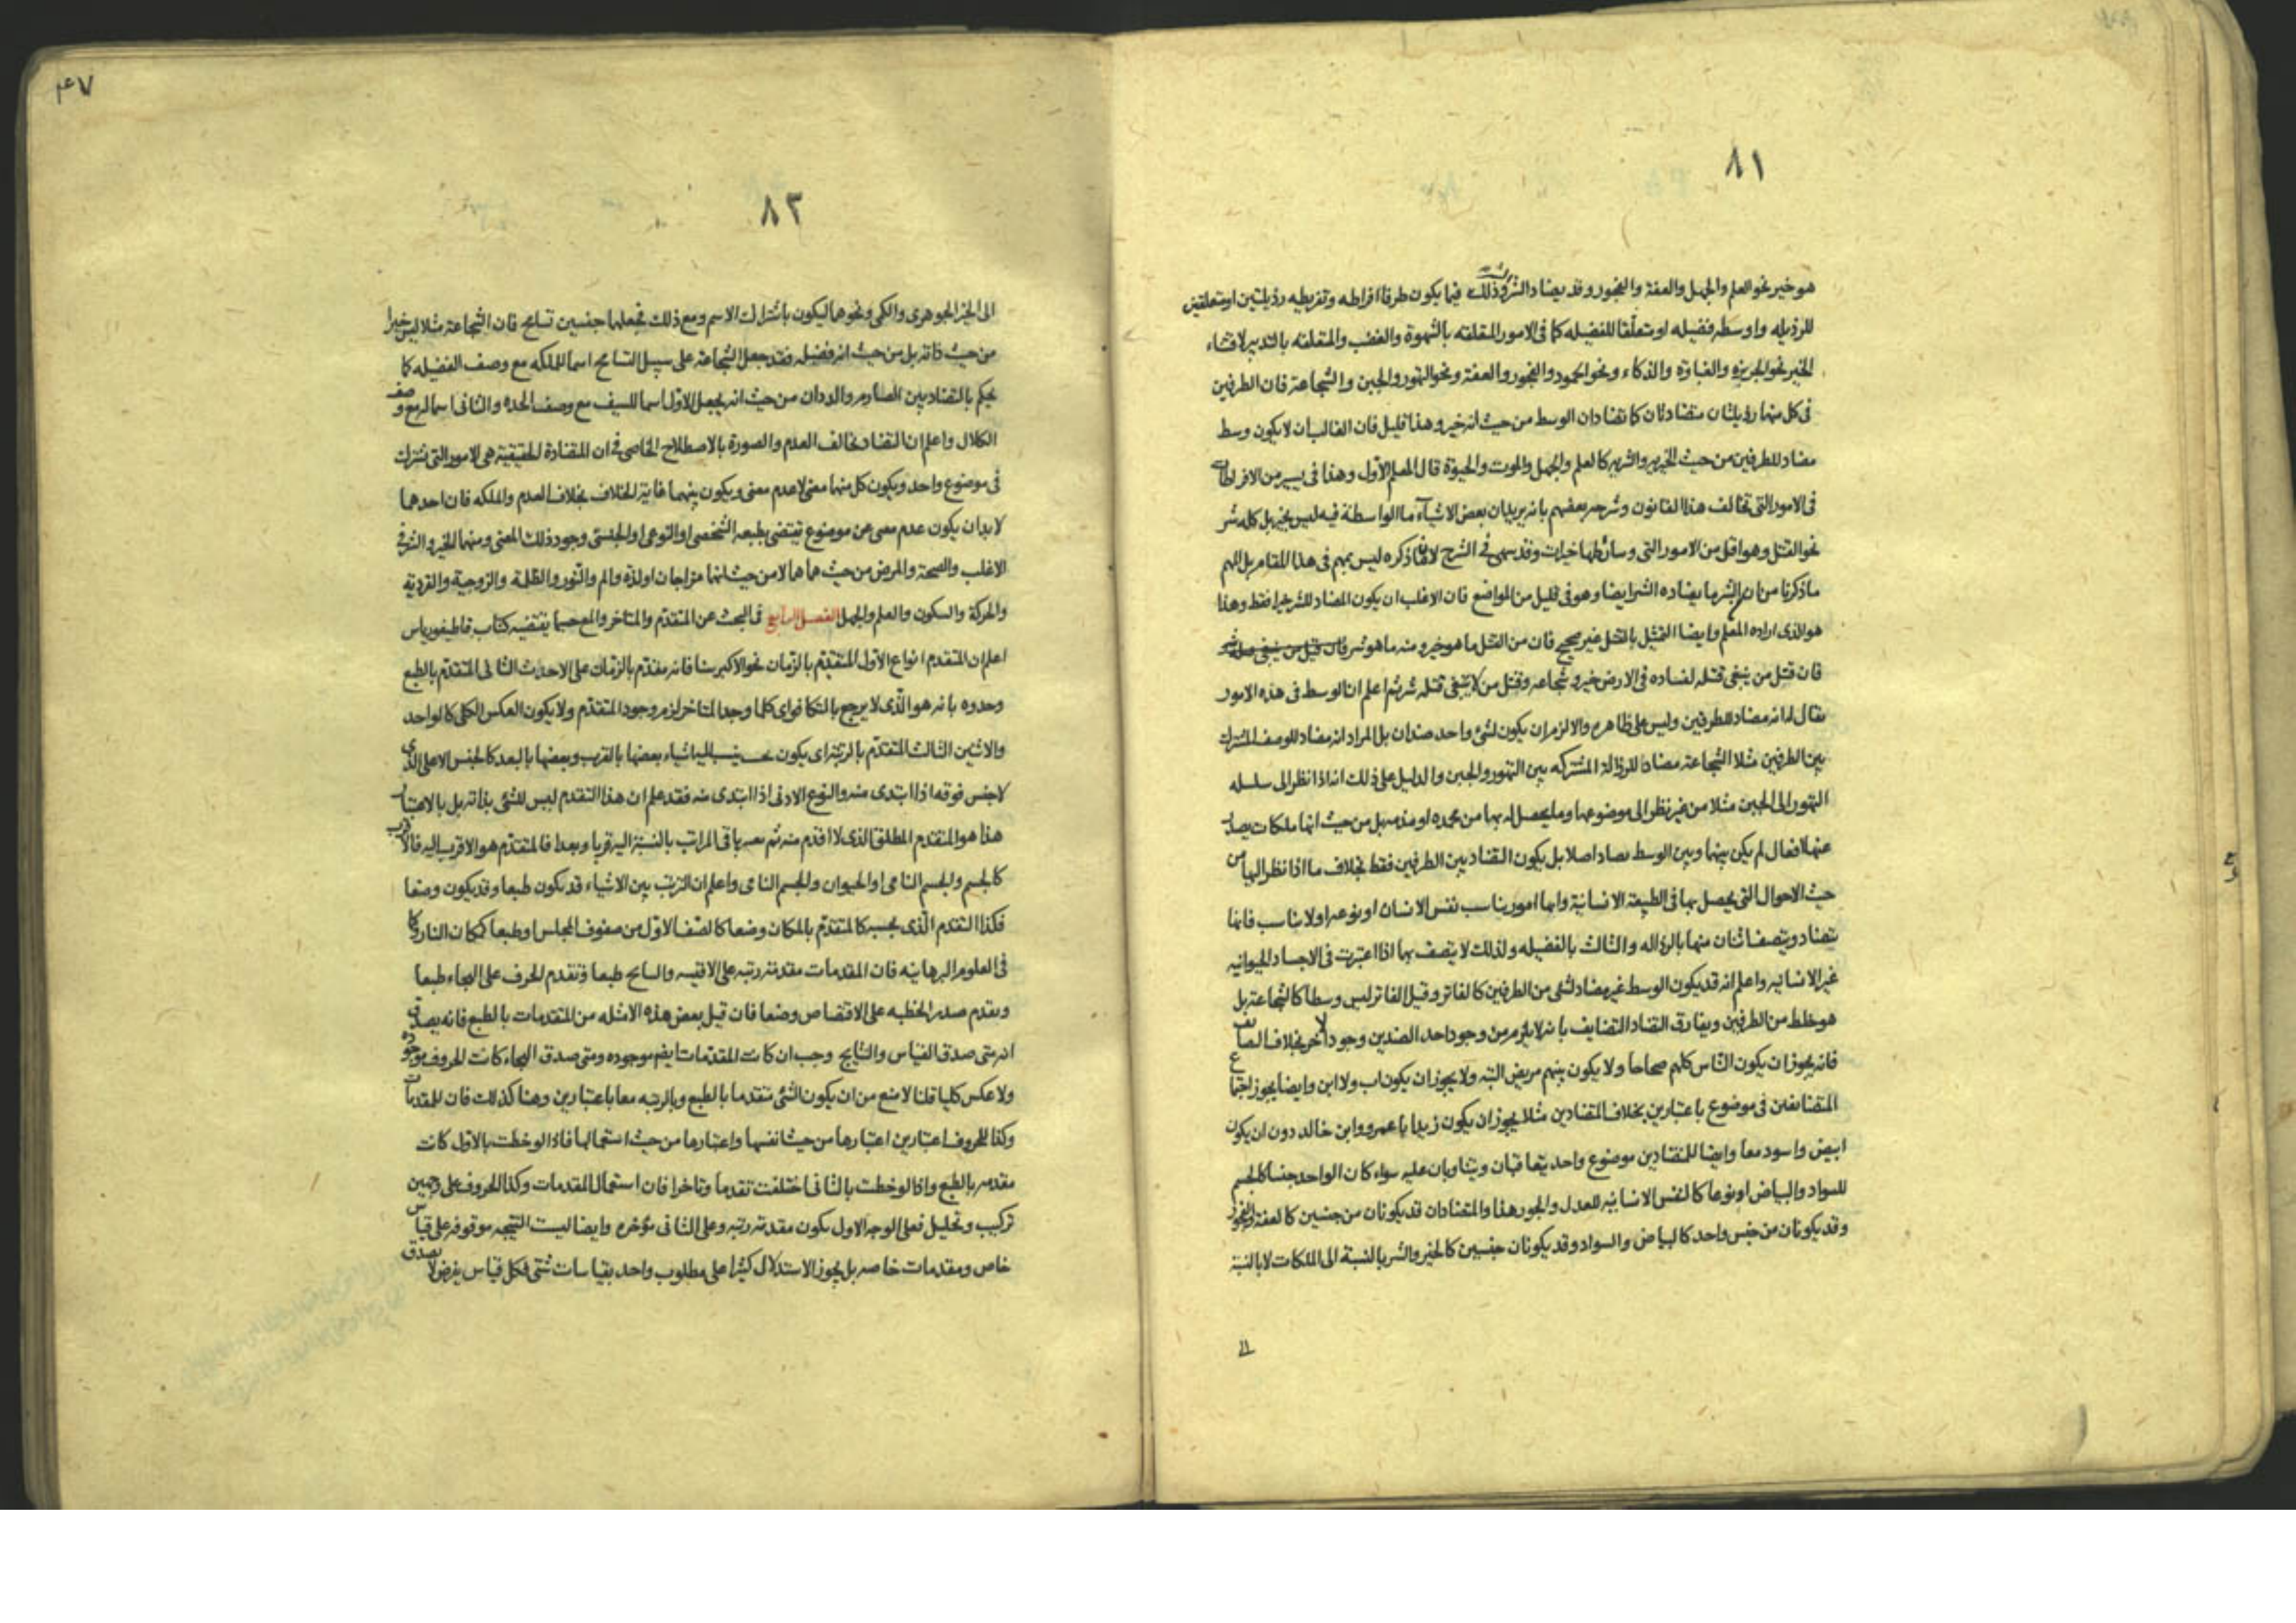 ٨١
هو خير نحو العلم والجهل والعفة والفجور وقد يضاد الشر وذلك فيما يكون طرفا افراطه وتفريطه رذيلتين او متعلقين
للرذيله واوسطه فضيله او متعلقا للفضيله كما فى الامور المتعلقه بالشهوة والغضب والمتعلقه بالتدبير لاقتناء
الخير نحو الجربزه والغباوة والذكاء ونحو الخمود والفجور والعفة ونحو التهور والجبن والشجاعة فان الطرفين
فى كل منها رذيلتان متضادتان كما تضادان الوسط من حيث انه خير وهذا قليل فان الغالب ان لا يكون وسط
مضاد للطرفين من حيث الخيريه والشريه كالعلم والجهل والموت والحيوة قال المعلم الاول وهذا فى يسير من الافراطات
فى الامور التى تخالف هذا القانون وشرحه بعضهم بانه يريد ان بعض الاشيآء ما الواسطة فيه ليس بخير بل كله شر
نحو القتل وهو اقل من الامور التى وسائطها خيرات وقد سهى فى الشرح لان ما ذكره ليس بمهم فى هذا المقام بل المهم
ما ذكرنا من ان الشر ما يضاده الشر ايضا وهو فى قليل من المواضع فان الاغلب ان يكون المضاد للشر خيرا فقط وهذا
هو الذى اراده المعلم وايضا التمثيل بالقتل غير صحيح فان من القتل ما هو خير ومنه ما هو شر
فان قتل من ينبغى قتله لفساده فى الارض خير وشجاعه وقتل من لا ينبغى قتله شر ثم اعلم ان الوسط فى هذه الامور
يقال له انه مضاد للطرفين وليس على ظاهره والا لزم ان يكون لشئ واحد ضدان بل المراد انه مضاد للوصف المشترك
بين الطرفين مثلا الشجاعة مضادة للرذالة المشتركه بين التهور والجبن والدليل على ذلك انه اذا نظر الى سلسله
التهور الى الجبن مثلا من غير نظر الى موضوعها وما يحصل له بها من محمده او مذمه بل من حيث انها ملكات يصدر
عنها افعال لم يكن بينها وبين الوسط تضاد اصلا بل يكون التضاد بين الطرفين فقط بخلاف ما اذا نظر اليها من
حيث الاحوال التى يحصل بها فى الطبيعة الانسانية وانها امور يناسب نفس الانسان او نوعه او لا يناسب فانها
يتضاد ويتصف اثنان منها بالرذاله والثالث بالفضيله ولذلك لا يتصف بها اذا اعتبرت فى الاجساد الحيوانيه
غير الانسانيه واعلم انه قد يكون الوسط غير مضاد لشئ من الطرفين كالفاتر وقيل الفاتر ليس وسطا كالشجاعة بل
هو خلط من الطرفين ويفارق التضاد التضايف بانه لا يلزم من وجود احد الضدين وجود الاخر بخلاف المضايف
فانه يجوز ان يكون الناس كلهم صحاحا ولا يكون بينهم مريض البته ولا يجوز ان يكون اب ولا ابن وايضا يجوز اجتماع
المتضايفين فى موضوع باعتبارين بخلاف المتضادين مثلا يجوز ان يكون زيد ابا عمرو وابن خالد دون ان يكون
ابيض واسود معا وايضا للمتضادين موضوع واحد يتعاقبان ويتناوبان عليه سواء كان الواحد جنسا كالجسم
للسواد والبياض او نوعا كالنفس الانسانيه للعدل والجور هذا والمتضادان قد يكونان من جنسين كالعفة والفجور
وقد يكونان من جنس واحد كالبياض والسواد وقد يكونان جنسين كالخير والشر بالنسبة الى الملكات لا بالنسبة
٤٧
٨٢
الى الخير الجوهرى والكمى ونحوهما ليكون باشتراك الاسم ومع ذلك فجعلهما جنسين تسامح فان الشجاعة مثلا ليس خيرا
من حيث ذاته بل من حيث انه فضيله فقد جعل الشجاعة على سبيل التسامح اسما للملكه مع وصف الفضيله كما
يحكم بالتضاد بين الصارم والددان من حيث انه يجعل الاول اسما للسيف مع وصف الحده والثانى اسما له مع وصف
الكلال واعلم ان التضاد يخالف العدم والصورة بالاصطلاح الخاصى فى ان المتضادة الحقيقية هى الامور التى تشترك
فى موضوع واحد ويكون كل منهما معنى لا عدم معنى ويكون بينهما غاية الخلاف بخلاف العدم والملكه فان احدهما
لا بد ان يكون عدم معنى عن موضوع تقتضى بطبعه الشخصى او النوعى او الجنسى وجود ذلك المعنى ومنهما الخير والشر فى
الاغلب والصحة والمرض من حيث هما هما لا من حيث انهما مزاجان او لذة والم والنور والظلمة والزوجية والفردية
والحركة والسكون والعلم والجهل الفصل الرابع فى البحث عن المتقدم والمتاخر والمع حسبما يقتضيه كتاب قاطيغورياس
اعلم ان المتقدم انواع الاول المتقدم بالزمان نحو الاكبر سنا فانه متقدم بالزمان على الاحدث الثانى المتقدم بالطبع
وحدوه بانه هو الذى لا يرجع بالتكافواى كلما وجد المتاخر لزم وجود المتقدم ولا يكون العكس الكلى كالواحد
والاثنين الثالث المتقدم بالرتبة اى يكون اشياء بعضها بالقرب وبعضها بالبعد كالجنس الاعلى الذى
لا جنس فوقه اذا ابتدى منه والنوع الادنى اذا ابتدى منه فقد علم ان هذا التقدم ليس للشئ بذاته بل بالاعتبار
هذا هو المتقدم المطلق الذى لا اقدم منه ثم يعتبر باقى المراتب بالنسبة اليه قربا وبعدا فالمتقدم هو الاقرب اليه فالاقرب
كالجسم والجسم النامى او الحيوان والجسم النامى واعلم ان الترتب بين الاشياء قد يكون طبعا وقد يكون وضعا
فكذا التقدم الذى بحسبه كالمتقدم بالمكان وضعا كالصف الاول من صفوف المجلس او طبعا كمكان النار وكما
فى العلوم البرهانيه فان المقدمات مقدمة رتبه على الاقيسه والنتايج طبعا وتقدم الحرف على الهجاء طبعا
وتقدم صدر الخطبه على الاقتصاص وضعا فان قيل بعض هذه الامثله من المتقدمات بالطبع فانه يصدق
انه متى صدق القياس والنتايج وجب ان كانت المقدمات ايضا موجوده ومتى صدق الهجاء كانت الحروف موجوده
ولا عكس كليا قلنا لا منع من ان يكون الشئ متقدما بالطبع وبالرتبه معا باعتبارين وهنا كذلك فان للمقدمات
وكذا للحروف اعتبارين اعتبارها من حيث نفسها واعتبارها من حيث استعمالها فاذا لوحظت بالاول كانت
مقدمه بالطبع واذا لوحظت بالثانى اختلفت تقدما وتاخرا فان استعمال المقدمات وكذا الحروف على وجهين
تركيب وتحليل فعلى الوجه الاول يكون مقدمة رتبه وعلى الثانى مؤخره وايضا ليست النتيجه موقوفه على قياس
خاص ومقدمات خاصه بل يجوز الاستدلال كثيرا على مطلوب واحد بقياسات شتى فكل قياس يفرض لا يصدق